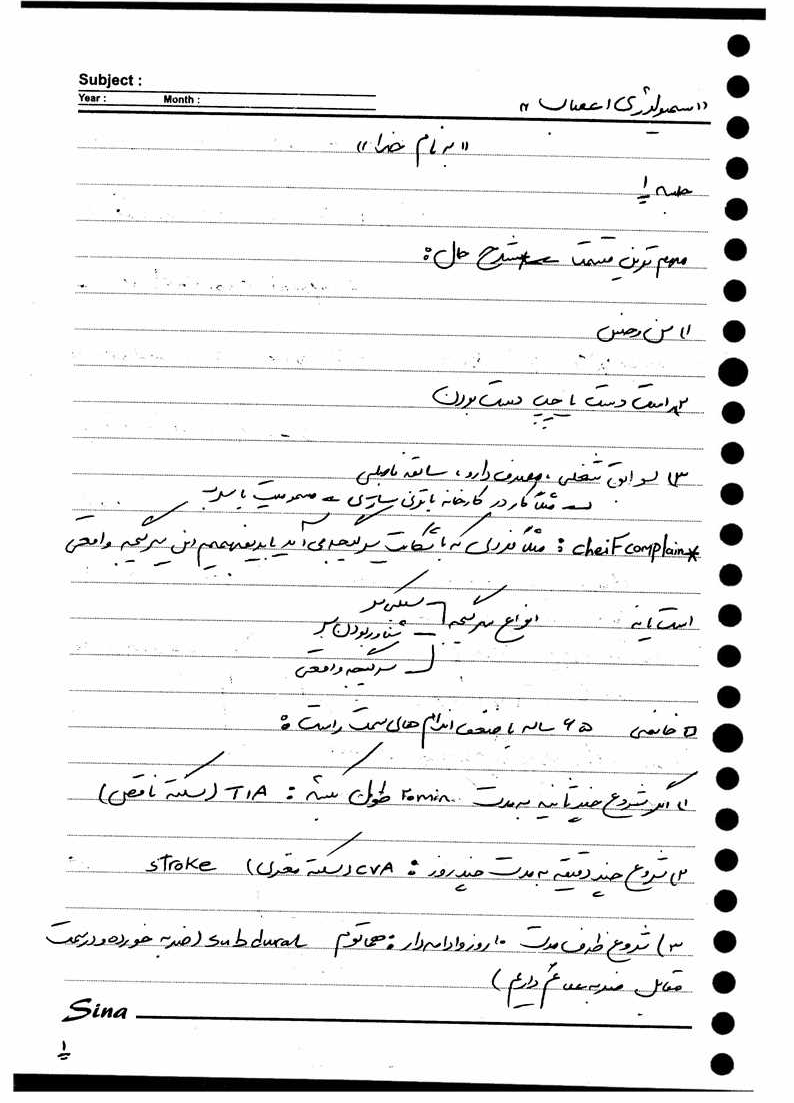 Subject :
Year : Month :
«سمیولوژی اعصاب»
«به نام خدا»
جلسه ۱
مهم ترین قسمت شرح حال :
۱) سن و جنس
۲) راست دست یا چپ دست بودن
۳) سوابق شغلی ، مصرف دارو ، سابقه فامیلی
مثلاً کار در کارخانه باتری سازی ← مسمومیت با سرب
*cheif complain : مثلاً فردی که با شکایت سرگیجه می آید باید بفهمیم این سرگیجه واقعی
است یا نه انواع سرگیجه
سبکی سر
شناور بودن سر
سرگیجه واقعی
خانمی ۶۵ ساله با ضعف اندام های سمت راست :
۱) اگر شروع چند ثانیه به مدت ۲۰min طول بکشه : TIA (سکته ناقص)
۲) شروع چند دقیقه به مدت چند روز : CVA (سکته مغزی) stroke
۳) شروع ظرف مدت ۱۰ روز و ادامه دار : هماتوم subdural (ضربه خورده و در سمت
مقابل ضربه علائم داریم)
Sina
۱